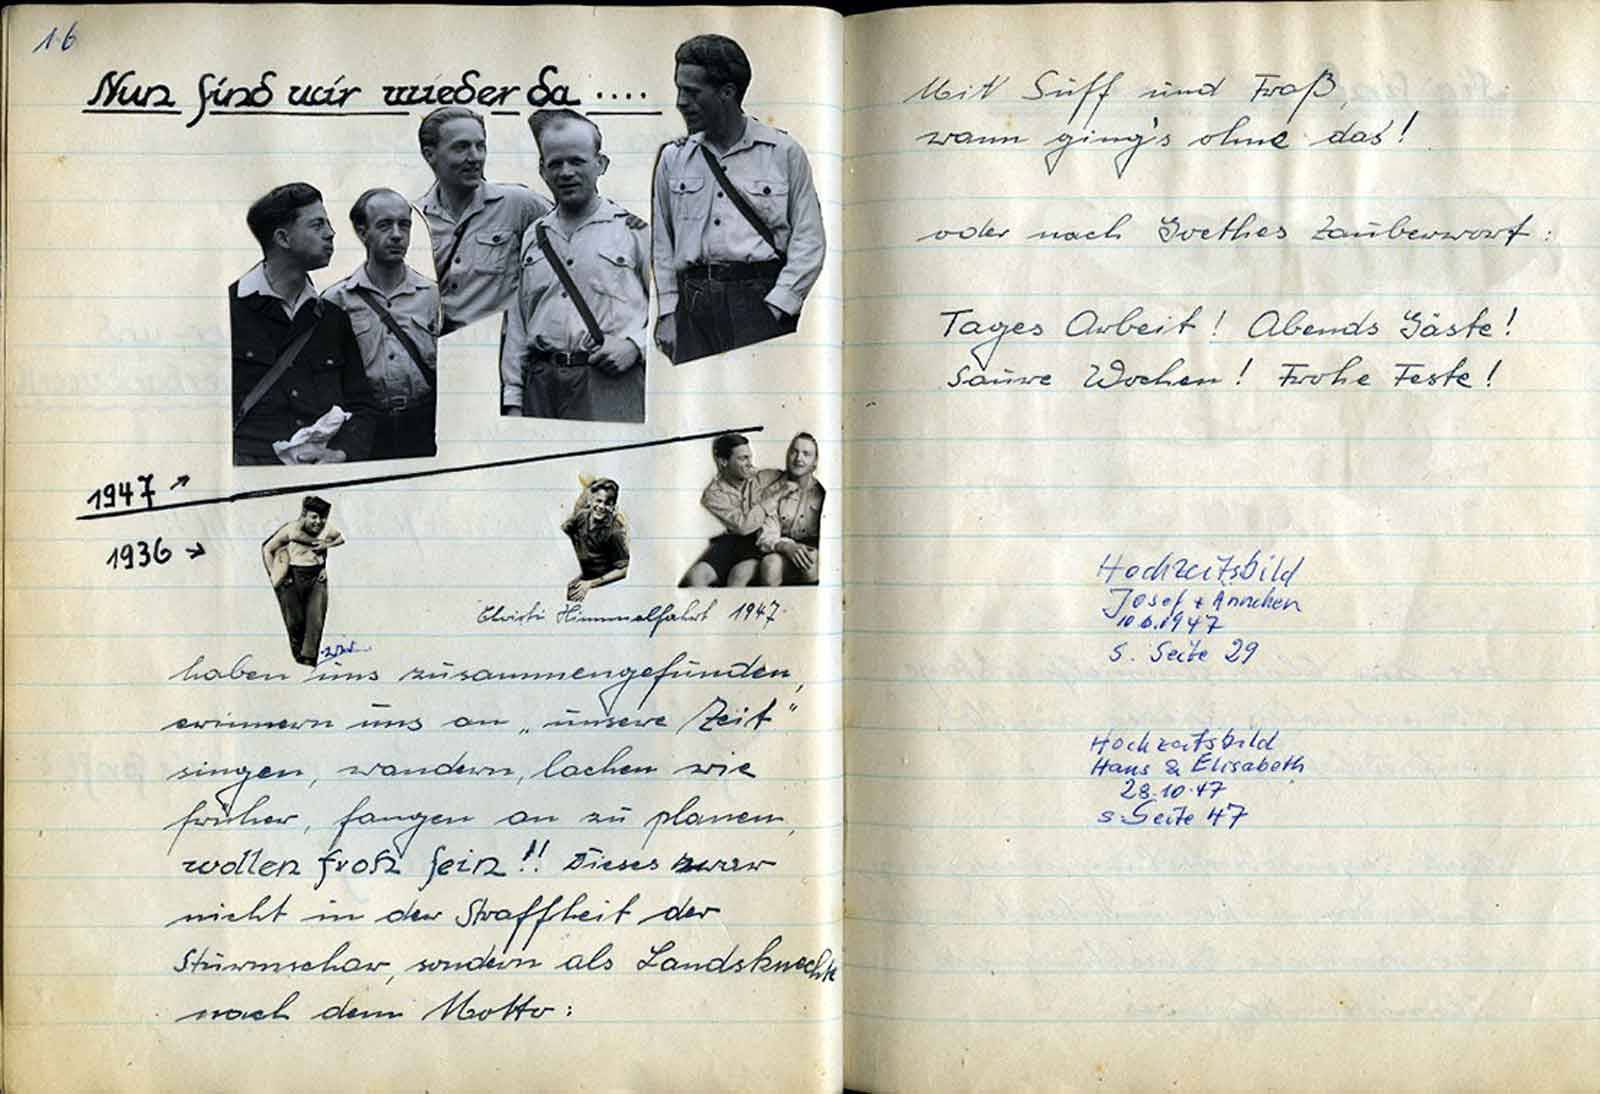 16
Nun sind wir wieder da ....
1947 ↗
1936 →
Christi Himmelfahrt 1947.
haben uns zusammengefunden,
erinnern uns an „unsere Zeit"
singen, wandern, lachen wie
früher, fangen an zu planen,
wollen froh sein!! Dieses zwar
nicht in der Straffheit der
Sturmschar, sondern als Landsknechte
nach dem Motto:
Mit Suff und Fraß,
wann ging's ohne das!
oder nach Goethes Zauberwort:
Tages Arbeit! Abends Gäste!
Saure Wochen! Frohe Feste!
Hochzeitsbild
Josef + Ännchen
10.6.1947
s. Seite 29
Hochzeitsbild
Hans & Elisabeth
28.10.47
s. Seite 47